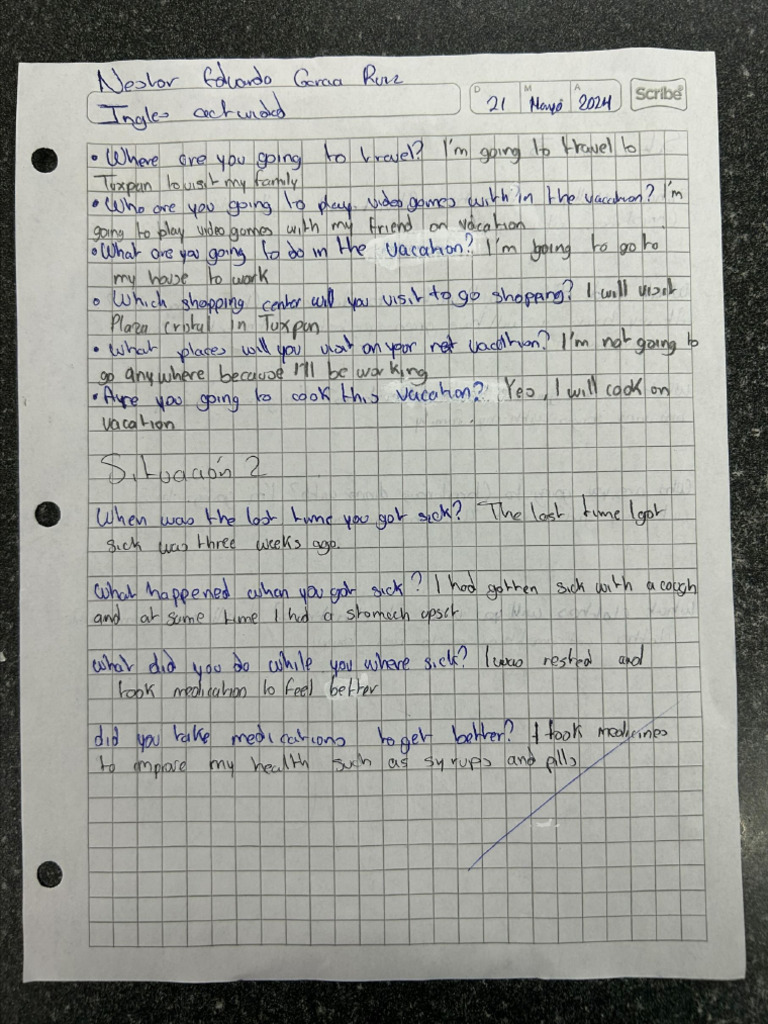 Nestor Eduardo Garcia Ruiz
Ingles actividad
D M A
21 Mayo 2024
Scribe
• Where are you going to travel? I'm going to travel to
Tuxpan to visit my family
• Who are you going to play video games with in the vacation? I'm
going to play video games with my friend on vacation
• What are you going to do in the vacation? I'm going to go to
my house to work
• Which shopping center will you visit to go shopping? I will visit
Plaza cristal in Tuxpan
• What places will you visit on your next vacation? I'm not going to
go anywhere because I'll be working
• Are you going to cook this vacation? Yes, I will cook on
vacation
Situación 2
When was the last time you got sick? The last time I got
sick was three weeks ago.
What happened when you got sick? I had gotten sick with a cough
and at same time I had a stomach upset
what did you do while you where sick? I was rested and
took medication to feel better
did you take medications to get better? I took medicines
to improve my health such as syrups and pills